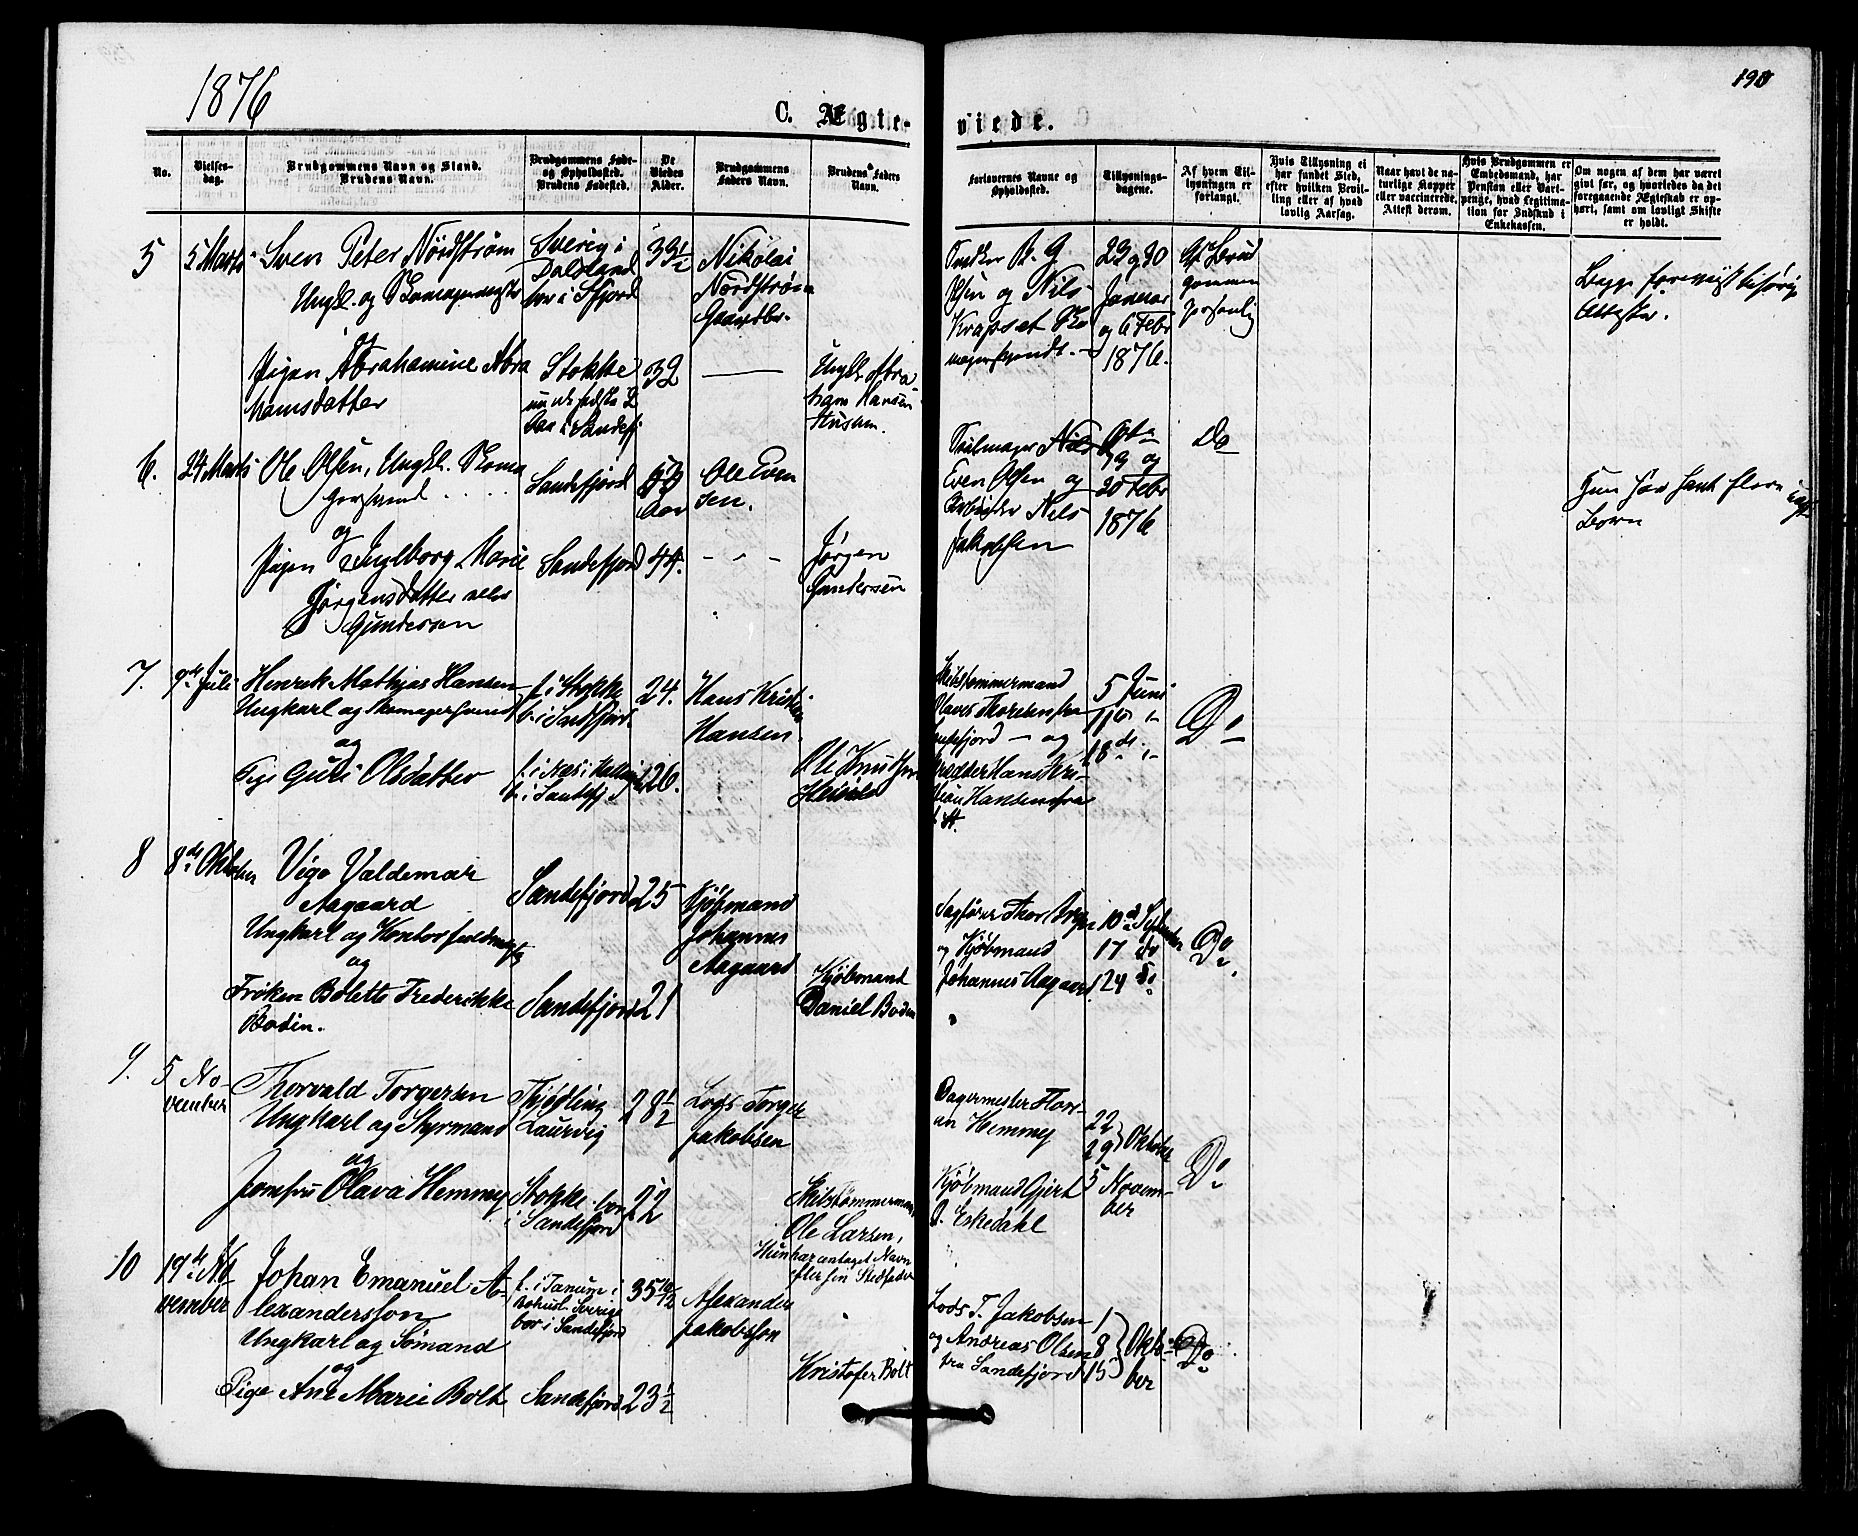 1876
190
C. Ægte-
viede.
No.
Vielses-
dag.
Brudgommens Navn og Stand.
Brudens Navn.
Brudgommens Føde-
og Opholdssted.
Brudens Fødested.
De
Viedes
Alder.
Brudgommens
Faders Navn.
Brudens Faders
Navn.
Forlovernes Navne og
Opholdssted.
Tillysnings-
dagene.
Af hvem Til-
lysningen er
forlangt.
Hvis Tillysning ei
har fundet Sted,
efter hvilken Bevil-
ling eller af hvad
lovlig Aarsag.
Naar havt de na-
turlige Kopper
eller vaccinerede.
Attest derom.
Hvis Brudgommen er
Embedsmand, har
Pension eller Vart-
penge, hvad Legitima-
tion for Indskud i
Enkekassen.
Om nogen af dem har været
givt før, og hvorledes da det
foregaaende Ægteskab er op-
hørt, samt om lovligt Skifte
er holdt.
5
5 Marts
Sven Peter Nordstrøm
Ungk. og
og
Pigen Abrahamine Abra
hamsdatter
Sverig i
Dalsland
bor i Sfjord
Stokke
32
Nikolai
Nordstrøm
Gaardbr.
Ungk. Abra
ham Hansen
B. G.
Olsen og Nils
22 og 30
Januar
og 6 Febr
1876.
Af Brud
gommen
personlig
Begge forevist
Attester.
6.
24 Marts
Ole Olsen, Ungkl. Skoma
gersvend
og
Pigen Ingeborg Marie
Jørgensdatter
Gundersen
Sandefjord
Sandefjord
Aar
44.
Ole Even
sen.
Jørgen
Gundersen
Even Olsen og
Arbeider Nils
Jakobsen
og
20 Febr
1876
Do
Hun har havt flere
Børn
7.
9de Juli
Henrik Mathias Hansen
Ungkarl og Skomagersvend
og
Pige Guri Olsdatter
f. i Stokke
b. i Sandfjord.
f. i Næs i
b. i Sandefj
24.
26.
Hans Kristian
Hansen.
Ole Knudsen
Skibstømmermand
Olaves Thoresen fra
Sandefjord – og
Hans Kri-
stian Hansen fra
5 Juni
11te
18de
Do
8
8de Oktober
Vigo Valdemar
Aagaard
Ungkarl og Kontorfuldmægtig
og
Frøken Bolette Frederikke
Bodin.
Sandefjord
Sandefjord
25
21
Kjøbmand
Johannes
Aagaard
Kjøbmand
Daniel Bodin
Sagfører Thor
og Kjøbmand
Johannes Aagaard
10de September
17 Do
24 Do
Do
9.
5 No-
vember
Thorvald Torgersen
Ungkarl og Styrmand
og
Jomfru Olava Hemmey
Thjødling
Laurvig
Stokke – bor
i Sandefjord
28 1/2
22
Lods Torger
Jakobsen
Skibstømmermand
Ole Larsen,
Hun har antaget Navn
efter sin Stedfader
Kjøbmand Gjert
O. Eskedahl
22
29 } Oktober
5 Novem-
ber
Do
10
19de No-
vember
Johan Emanuel A-
lexandersson
Ungkarl og Sømand
og
Pige Ane Marie Bolt
f. i Tanum i
Bohusl. Sverige
bor i Sandefjord
Sandefjord
35 10/12
23 1/2
Alexander
Jakobsson
Kristofer Bolt
Lods T. Jakobsen
og Andreas Olsen
fra Sandefjord
1
8 } Okto-
15 ber
Do